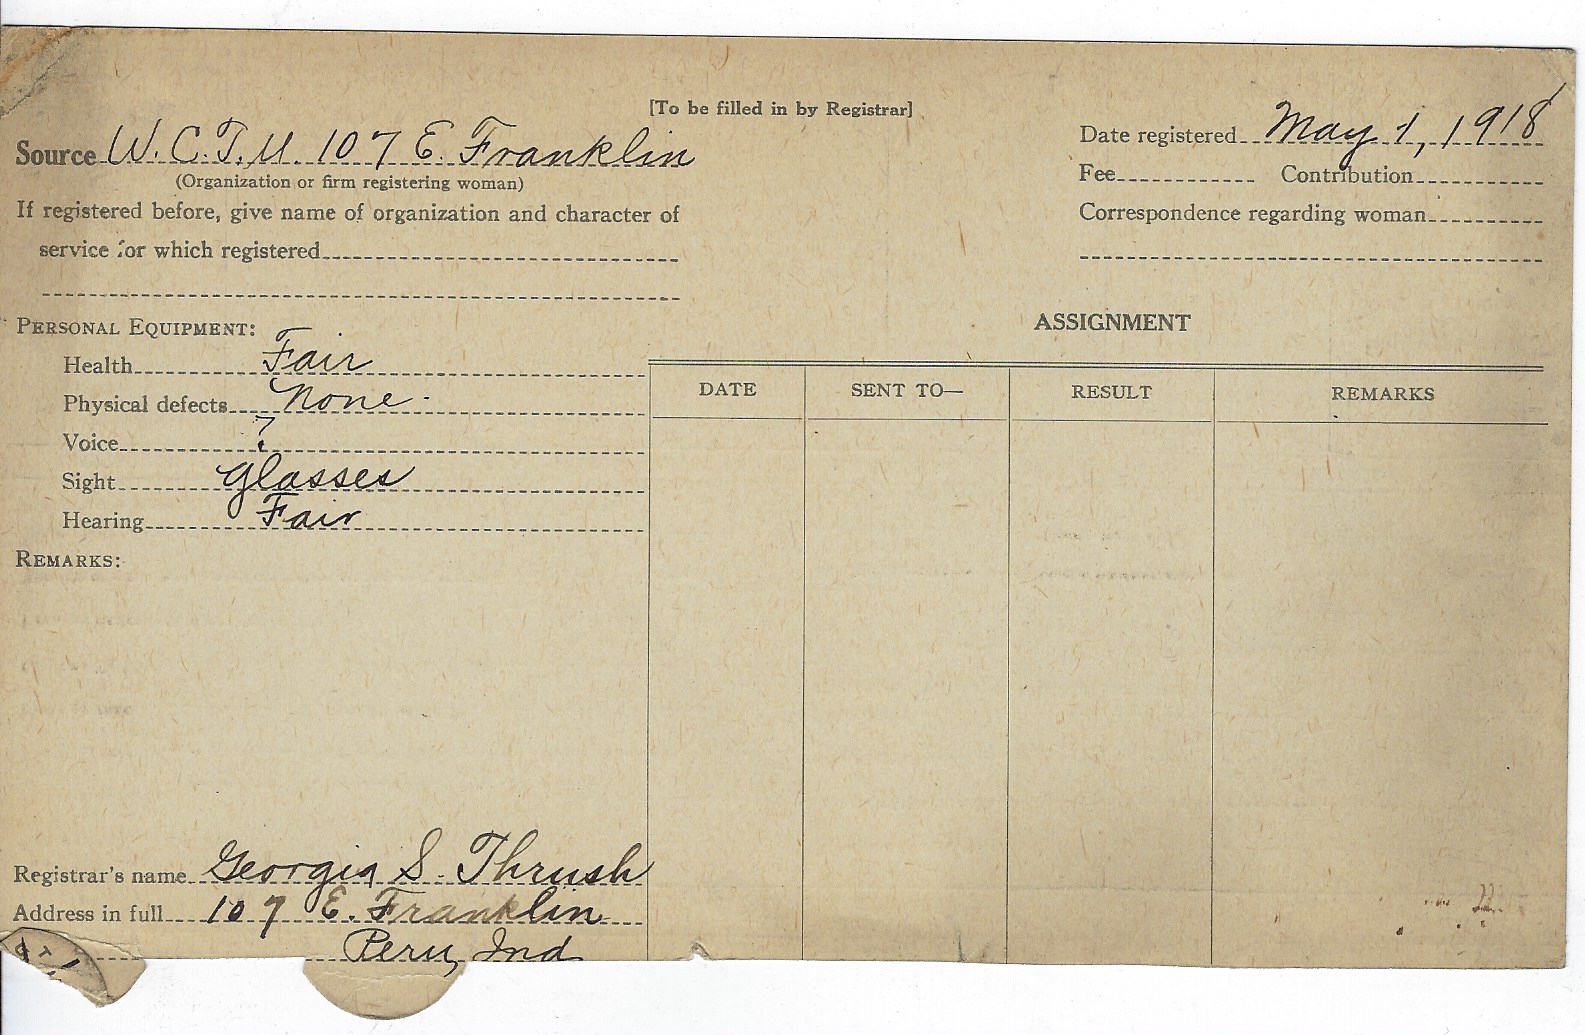 [To be filled in by Registrar]
Source W. C. T. U. 107 E. Franklin
(Organization or firm registering woman)
If registered before, give name of organization and character of
service for which registered
Date registered May 1, 1918
Fee Contribution
Correspondence regarding woman
PERSONAL EQUIPMENT:
Health Fair
Physical defects None.
Voice ?
Sight glasses
Hearing Fair
REMARKS:
ASSIGNMENT
DATE SENT TO— RESULT REMARKS
Registrar's name Georgia S. Thrush
Address in full 107 E. Franklin
Peru, Ind